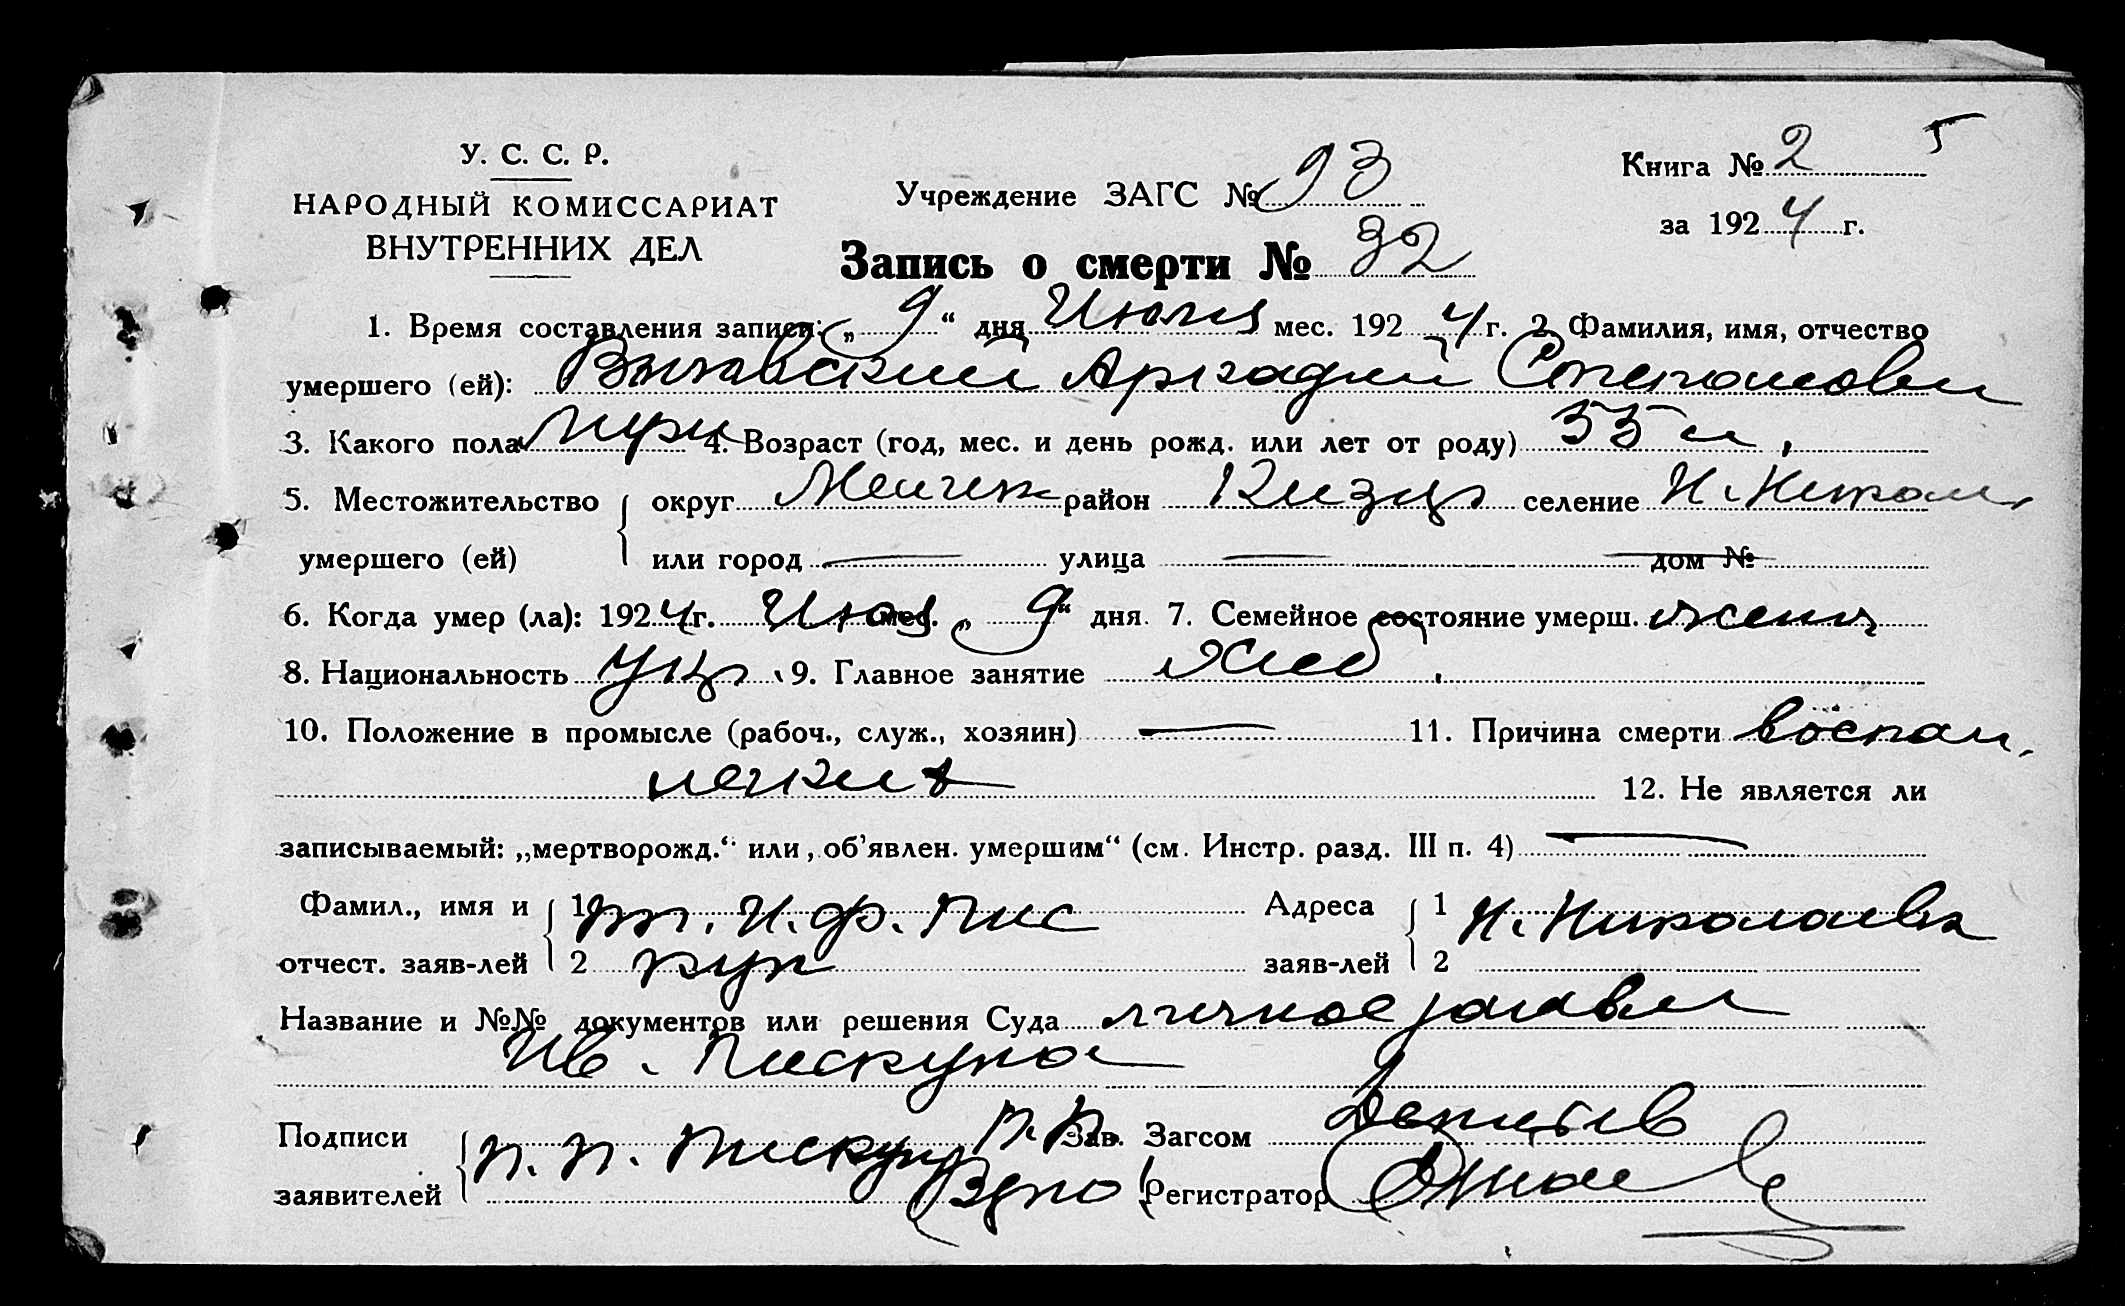 У. С. С. Р.
НАРОДНЫЙ КОМИССАРИАТ
ВНУТРЕННИХ ДЕЛ
Учреждение ЗАГС № 93
Книга № 2 5
за 1924 г.
Запись о смерти № 32
1. Время составления записи: „ 9 “ дня Июля мес. 1924 г. 2. Фамилия, имя, отчество
умершего (ей): Аркадий
3. Какого пола 4. Возраст (год, мес. и день рожд. или лет от роду)
5. Местожительство округ район селение Н. Никол
умершего (ей) или город — улица — дом №
6. Когда умер (ла): 1924 г. Июл мес. „ 9 “ дня. 7. Семейное состояние умерш. жена
8. Национальность Укр. 9. Главное занятие Хлеб.
10. Положение в промысле (рабоч., служ., хозяин) — 11. Причина смерти воспал.
легких 12. Не является ли
записываемый: „мертворожд.“ или „об’явлен. умершим“ (см. Инстр. разд. III п. 4) —
Фамил., имя и 1 гр. И. Ф. Пис Адреса 1 Н. Николаевка
отчест. заяв-лей 2 кун заяв-лей 2
Название и №№ документов или решения Суда личное заявл
Ив. Пискуна
Подписи п. п. Пискун Зав. Загсом
заявителей Регистратор